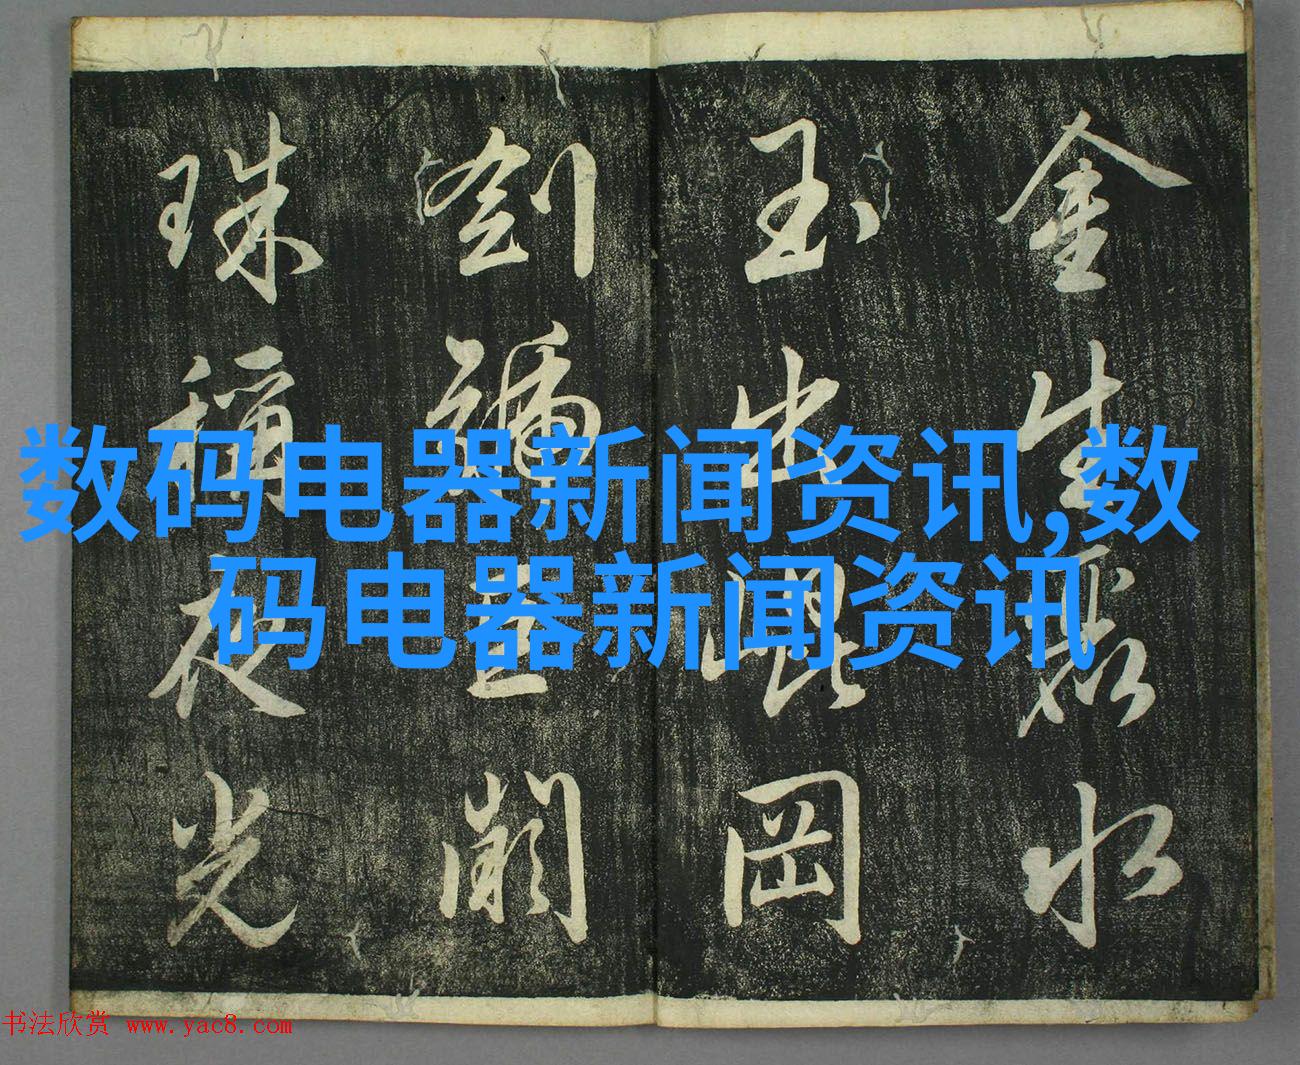 金生麗水
玉出崑岡
劍號巨闕
珠稱夜光
数码电器新闻资讯,数
码电器新闻资讯
书法欣赏 www.yac8.com